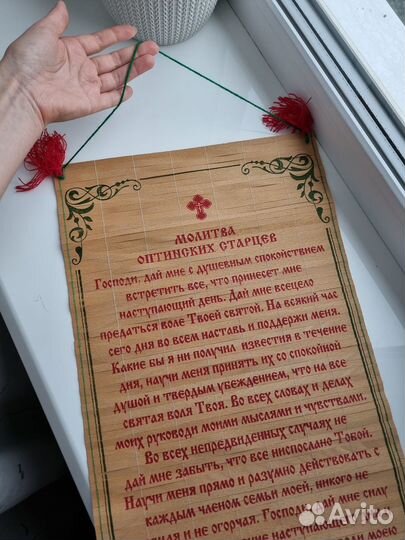 МОЛИТВА
ОПТИНСКИХ СТАРЦЕВ
Господи, дай мне с душевным спокойствием
встретить все, что принесет мне
наступающий день. Дай мне всецело
предаться воле Твоей святой. На всякий час
сего дня во всем наставь и поддержи меня.
Какие бы я ни получил известия в течение
дня, научи меня принять их со спокойной
душой и твердым убеждением, что на все
святая воля Твоя. Во всех словах и делах
моих руководи моими мыслями и чувствами.
Во всех непредвиденных случаях не
дай мне забыть, что все ниспослано Тобой.
Научи меня прямо и разумно действовать с
каждым членом семьи моей, никого не
и не огорчая. Господи, дай мне силу
наступающ
моею
Avito